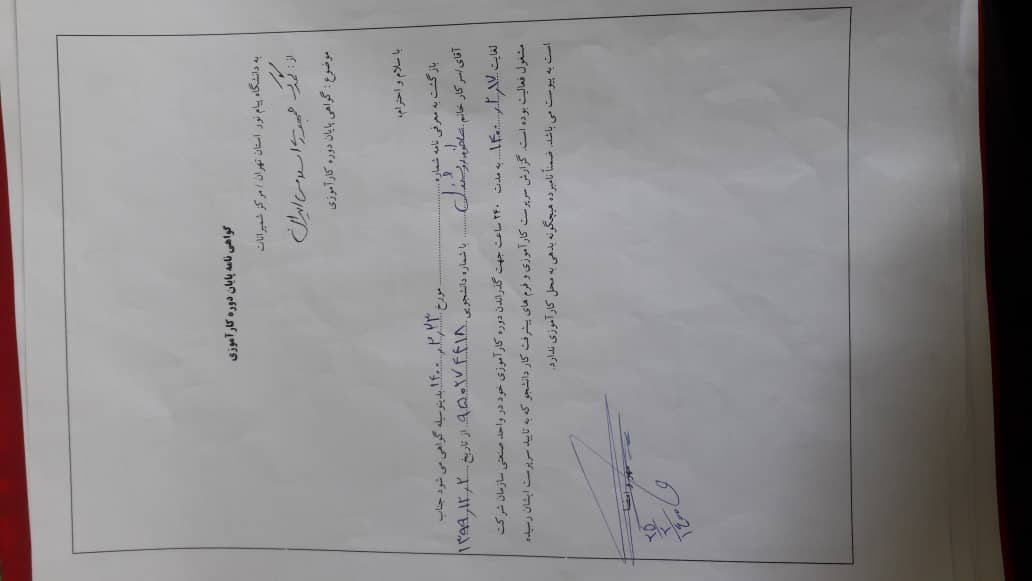 گواهی نامه پایان دوره کارآموزی
به دانشگاه پیام نور استان تهران / مرکز شمیرانات
از : جمهوری اسلامی ایران
موضوع : گواهی پایان دوره کارآموزی
با سلام و احترام،
بازگشت به معرفی نامه شماره ............ مورخ ۱۴۰۰/۲/۲۳ بدینوسیله گواهی می شود جناب
آقای/سرکار خانم با شماره دانشجویی ۹۵۰۲۷۴۴۱۸ از تاریخ ۱۳۹۹/۱۲/۲
لغایت ۱۴۰۰/۲/۱۷ به مدت ۲۴۰ ساعت جهت گذراندن دوره کارآموزی خود در واحد صنعتی سازمان شرکت
مشغول فعالیت بوده است. گزارش سرپرست کارآموزی و فرم های پیشرفت کار دانشجو که به تایید سرپرست ایشان رسیده
است به پیوست می باشد. ضمناً نامبرده هیچگونه بدهی به محل کارآموزی ندارد.
مهر و امضا
۱۴۰۰/۲/۲۵